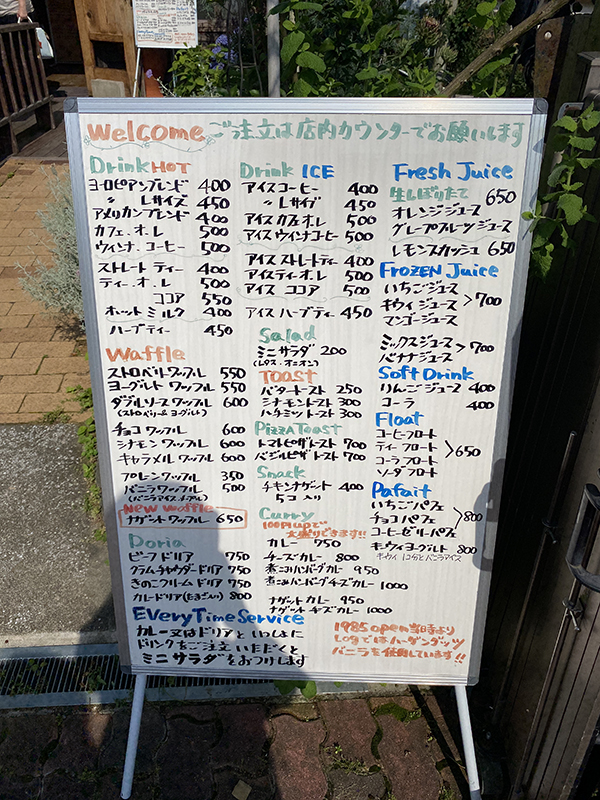 Welcome ご注文は店内カウンターでお願いします
Drink HOT
ヨーロピアンブレンド 400
〃 Lサイズ 450
アメリカンブレンド 400
カフェ.オ.レ 500
ウィンナ.コーヒー 500
ストレート ティー 400
ティー.オ.レ 500
ココア 550
ホット ミルク 400
ハーブティー 450
Waffle
ストロベリーワッフル 550
ヨーグルト ワッフル 550
ダブルソースワッフル 600
(ストロベリー&ヨーグルト)
チョコ ワッフル 600
シナモン ワッフル 600
キャラメル ワッフル 600
プレーンワッフル 350
バニラワッフル 500
(バニラアイス.チョコ)
New Waffle
ナゲット ワッフル 650
Doria
ビーフ ドリア 750
クラムチャウダードリア 750
きのこクリームドリア 750
カレードリア(たまご入り) 800
Every Time Service
カレー又はドリアと いっしょに
ドリンクをご注文 いただくと
ミニ サラダをおつけします
Drink ICE
アイスコーヒー 400
〃 Lサイズ 450
アイス カフェオ.レ 500
アイスウィンナコーヒー 500
アイス ストレートティー 400
アイスティーオ.レ 500
アイス ココア 500
アイス ハーブティー 450
Salad
ミニ サラダ 200
(レタス・オニオン)
Toast
バタートースト 250
シナモントースト 300
ハチミツトースト 300
Pizza Toast
トマトピザトースト 700
バジルピザトースト 700
Snack
チキンナゲット 400
5コ入り
Curry
100円upで
大盛りできます!!
カレー 750
チーズカレー 800
煮こみハンバーグカレー 950
煮こみハンバーグチーズカレー 1000
ナゲットカレー 950
ナゲット チーズカレー 1000
Fresh Juice
生しぼりたて 650
オレンジジュース
グレープフルーツ ジュース
レモンスカッシュ 650
Frozen Juice
いちごジュース
キウィ ジュース >700
マンゴージュース
ミックスジュース >700
バナナジュース
Soft Drink
りんごジュース 400
コーラ 400
Float
コーヒーフロート
ティー フロート >650
コーラフロート
ソーダ フロート
Pafait
いちごパフェ
チョコパフェ >800
コーヒーゼリーパフェ
キウィヨーグルト 800
キウィ 1コ分とバニラアイス
1985 open当時より
Logではハーゲンダッツ
バニラを使用しています!!